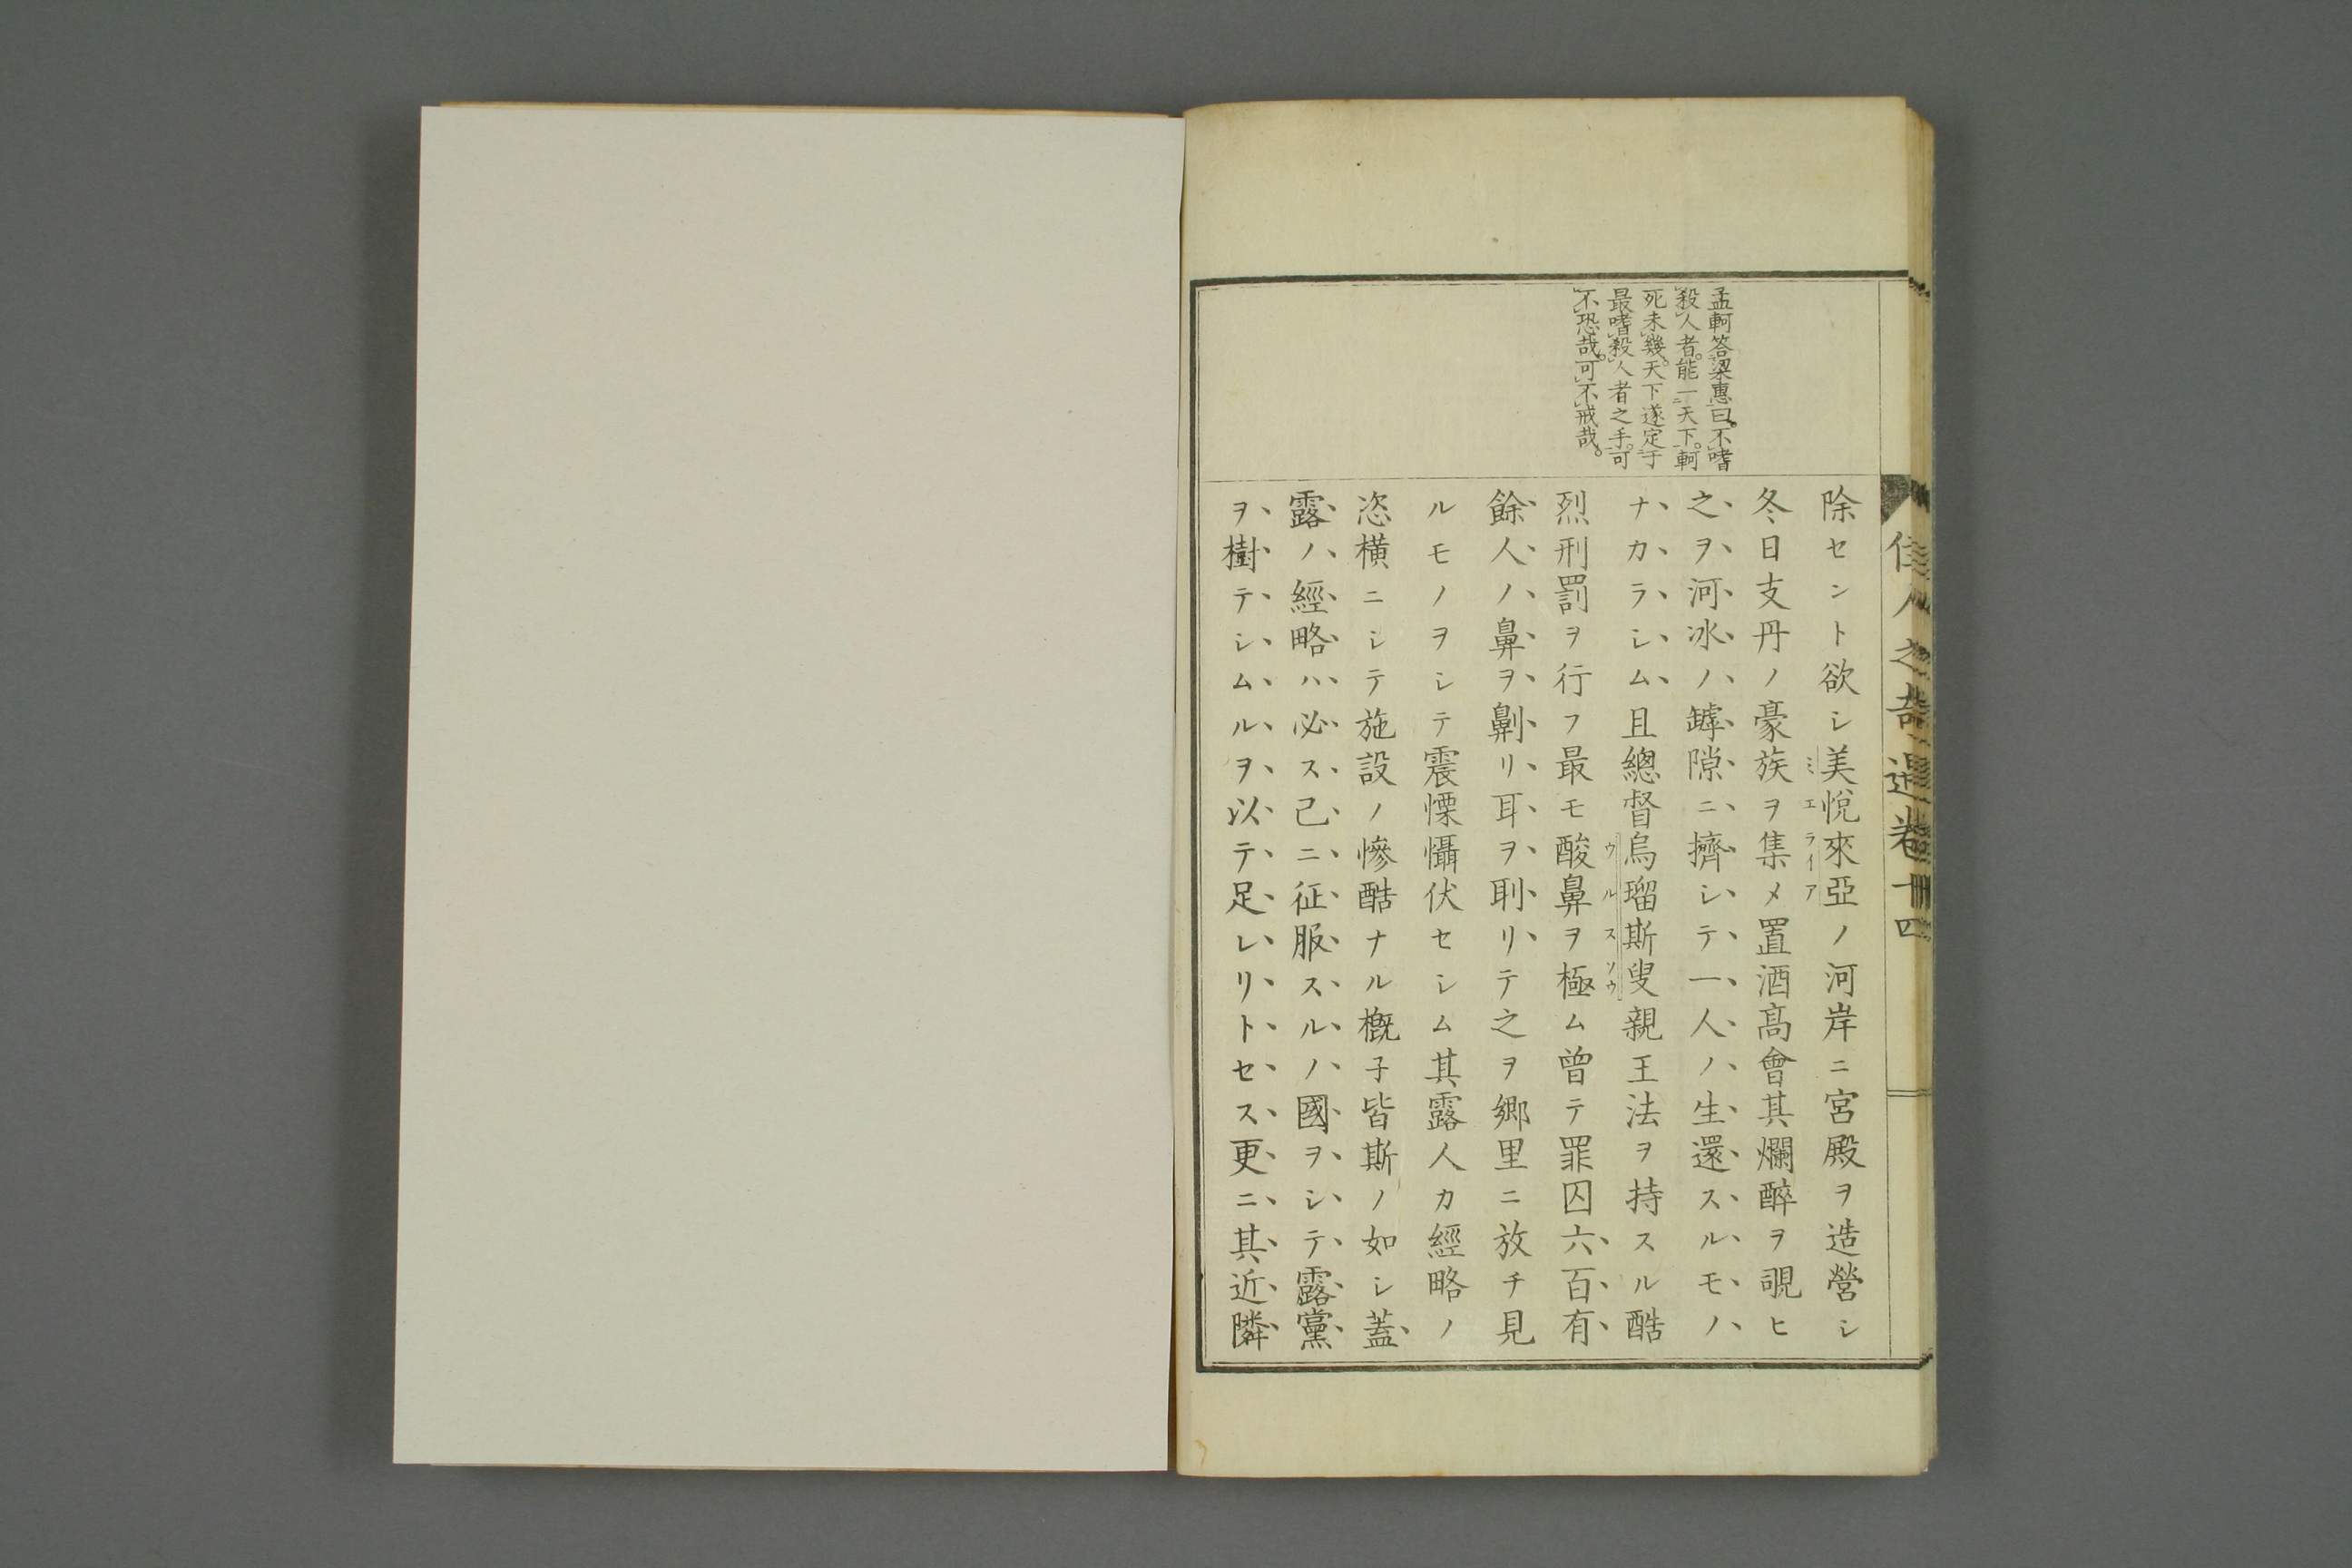 佳人之奇遇卷十四
孟軻答梁惠曰。不嗜
殺人者。能一天下。軻
死未幾。天下遂定于
最嗜殺人者之手。可
不恐哉。可不戒哉。
除セント欲シ美悅來亞ノ河岸ニ宮殿ヲ造營シ
ミエライア
冬日支丹ノ豪族ヲ集メ置酒髙會其爛醉ヲ覗ヒ
之ヲ河冰ノ罅隙ニ擠シテ一人ノ生還スルモノ
ナカラシム且總督烏瑠斯叟親王法ヲ持スル酷
ウルスソウ
烈刑罰ヲ行フ最モ酸鼻ヲ極ム曾テ罪囚六百有
餘人ノ鼻ヲ劓リ耳ヲ刵リテ之ヲ鄉里ニ放チ見
ルモノヲシテ震慄懾伏セシム其露人カ經略ノ
恣橫ニシテ施設ノ慘酷ナル概子皆斯ノ如シ蓋
露ノ經略ハ必ス己ニ征服スルノ國ヲシテ露黨
ヲ樹テシムルヲ以テ足レリトセス更ニ其近隣